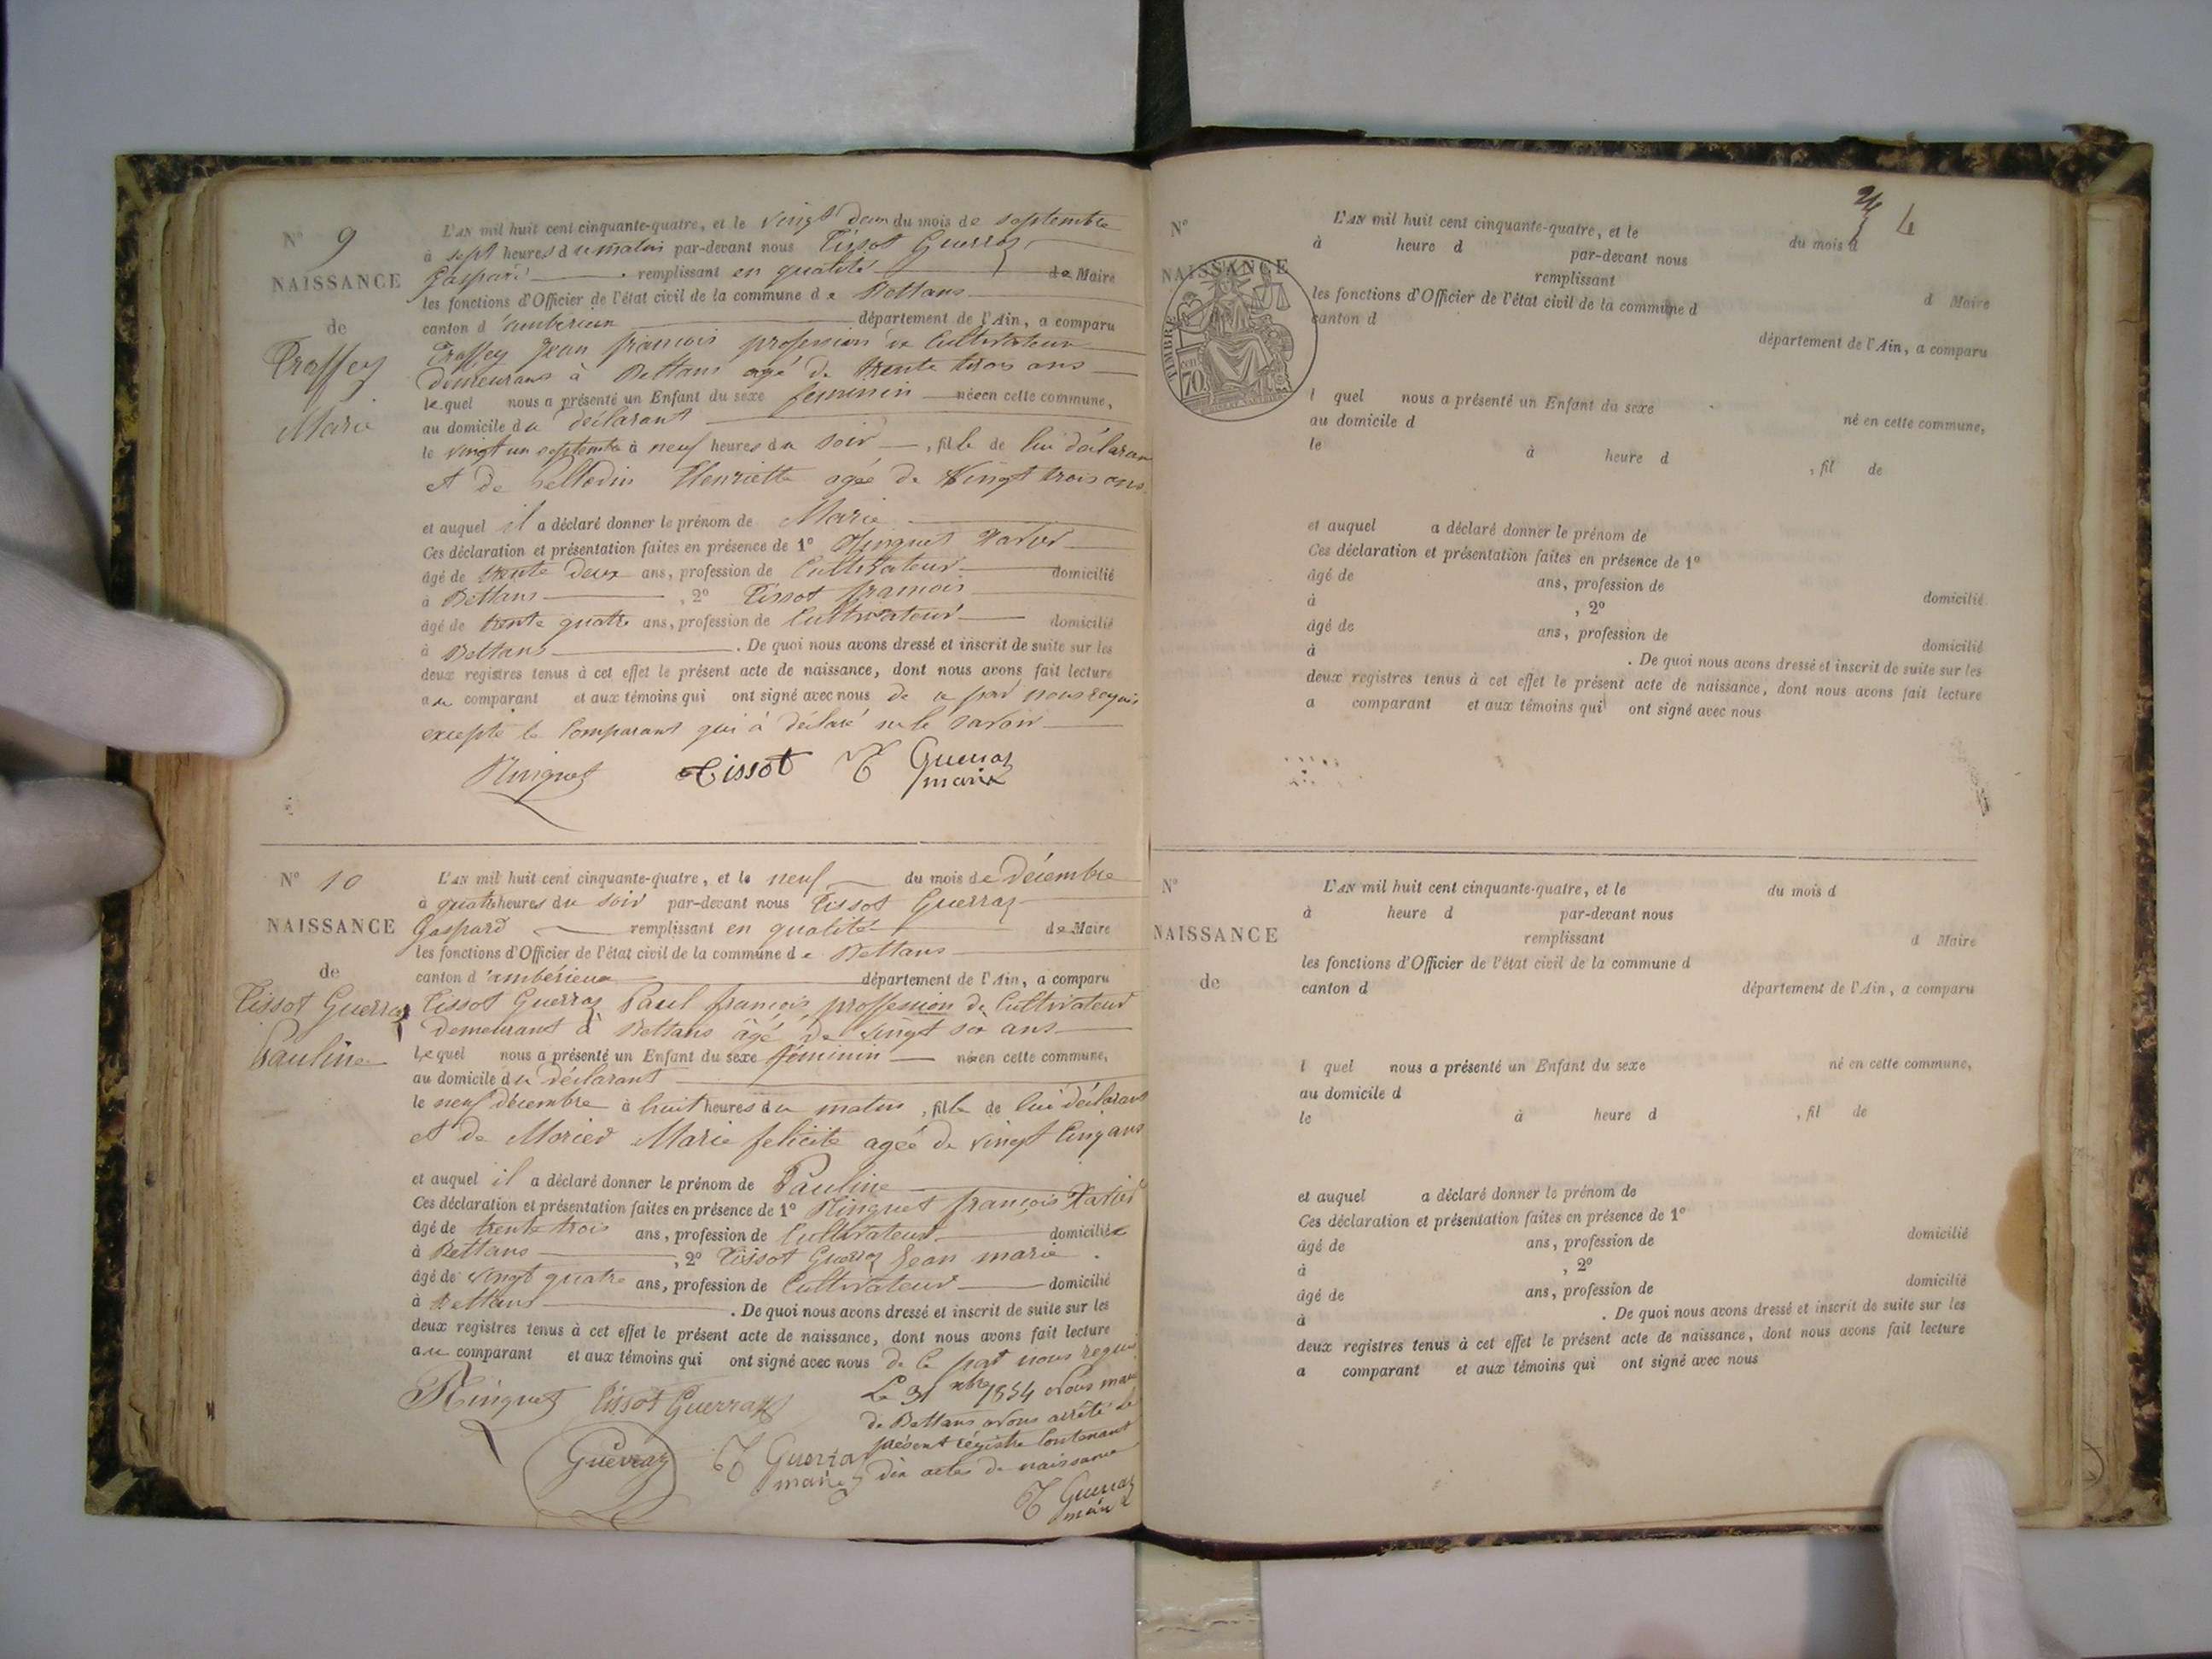 N° 9
NAISSANCE
de
Traffey
Marie
L'AN mil huit cent cinquante-quatre, et le vingt deux du mois de septembre
à sept heures du matin par-devant nous Tissot Guerraz
Gaspard remplissant en qualité de Maire
les fonctions d'Officier de l'état civil de la commune de Bettans
canton d'ambérieux département de l'Ain, a comparu
Traffey Jean françois profession de Cultivateur
demeurant à Bettans agé de trente trois ans
lequel nous a présenté un Enfant du sexe feminin née en cette commune,
au domicile du déclarant
le vingt un septembre à neuf heures du soir, fille de lui déclarant
et de Henriette agée de Vingt trois ans
et auquel il a déclaré donner le prénom de Marie
Ces déclaration et présentation faites en présence de 1° Ninguet Xavier
âgé de trente deux ans, profession de Cultivateur domicilié
à Bettans, 2° Tissot françois
âgé de trente quatre ans, profession de Cultivateur domicilié
à Bettans. De quoi nous avons dressé et inscrit de suite sur les
deux registres tenus à cet effet le présent acte de naissance, dont nous avons fait lecture
au comparant et aux témoins qui ont signé avec nous de ce par nous requis
excepté le Comparant qui à déclaré ne le savoir
Ninguet Tissot T Guerraz
maire
N° 10
NAISSANCE
de
Tissot Guerraz
Pauline
L'AN mil huit cent cinquante-quatre, et le neuf du mois de décembre
à quatre heures du soir par-devant nous Tissot Guerraz
Gaspard remplissant en qualité de Maire
les fonctions d'Officier de l'état civil de la commune de Bettans
canton d'ambérieux département de l'Ain, a comparu
Tissot Guerraz Paul françois proffession de Cultivateur
demeurant à Bettans âgé de vingt six ans
lequel nous a présenté un Enfant du sexe féminin née en cette commune,
au domicile du déclarant
le neuf décembre à huit heures du matin, fille de lui déclarant
et de Morier Marie felicite agée de vingt Cinq ans
et auquel il a déclaré donner le prénom de Pauline
Ces déclaration et présentation faites en présence de 1° Ninguet françois Xavier
âgé de trente trois ans, profession de Cultivateur domicilié
à Bettans, 2° Tissot Guerraz Jean marie
âgé de vingt quatre ans, profession de Cultivateur domicilié
à Bettans. De quoi nous avons dressé et inscrit de suite sur les
deux registres tenus à cet effet le présent acte de naissance, dont nous avons fait lecture
au comparant et aux témoins qui ont signé avec nous de ce par nous requis
Ninguet Tissot Guerraz
Guerraz T Guerraz
maire
Le 31 xbre 1854 Nous maire
de Bettans avons arrêté le
présent régistre Contenant
dix actes de naissance
T Guerraz
maire
4
N°
NAISSANCE
TIMBRE
70
L'AN mil huit cent cinquante-quatre, et le du mois d
à heure d par-devant nous
remplissant d Maire
les fonctions d'Officier de l'état civil de la commune d
canton d département de l'Ain, a comparu
l quel nous a présenté un Enfant du sexe né en cette commune,
au domicile d
le à heure d , fil de
et auquel a déclaré donner le prénom de
Ces déclaration et présentation faites en présence de 1°
âgé de ans, profession de domicilié
à , 2°
âgé de ans, profession de domicilié
à . De quoi nous avons dressé et inscrit de suite sur les
deux registres tenus à cet effet le présent acte de naissance, dont nous avons fait lecture
a comparant et aux témoins qui ont signé avec nous
N°
NAISSANCE
de
L'AN mil huit cent cinquante-quatre, et le du mois d
à heure d par-devant nous
remplissant d Maire
les fonctions d'Officier de l'état civil de la commune d
canton d département de l'Ain, a comparu
l quel nous a présenté un Enfant du sexe né en cette commune,
au domicile d
le à heure d , fil de
et auquel a déclaré donner le prénom de
Ces déclaration et présentation faites en présence de 1°
âgé de ans, profession de domicilié
à , 2°
âgé de ans, profession de domicilié
à . De quoi nous avons dressé et inscrit de suite sur les
deux registres tenus à cet effet le présent acte de naissance, dont nous avons fait lecture
a comparant et aux témoins qui ont signé avec nous